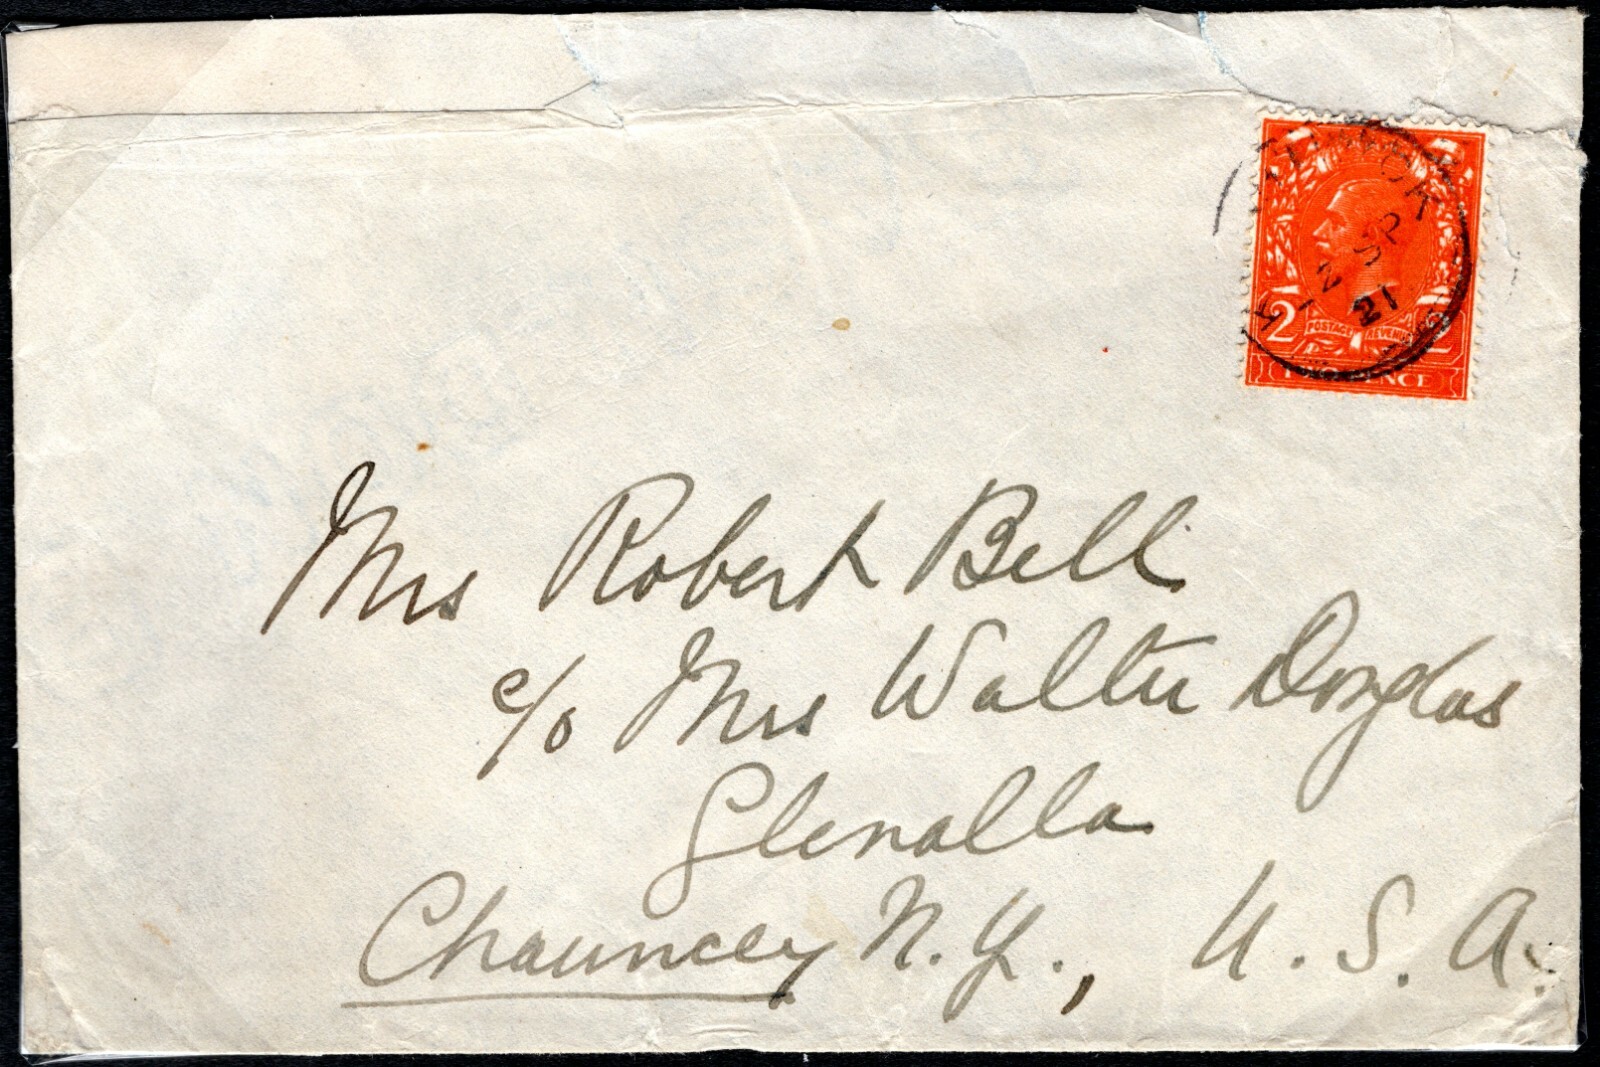 2 POSTAGE REVENUE 2
TWO PENCE
SP
21
Mrs Robert Bell
c/o Mrs Walter Douglas
Glenalla
Chauncey N.Y., U.S.A.